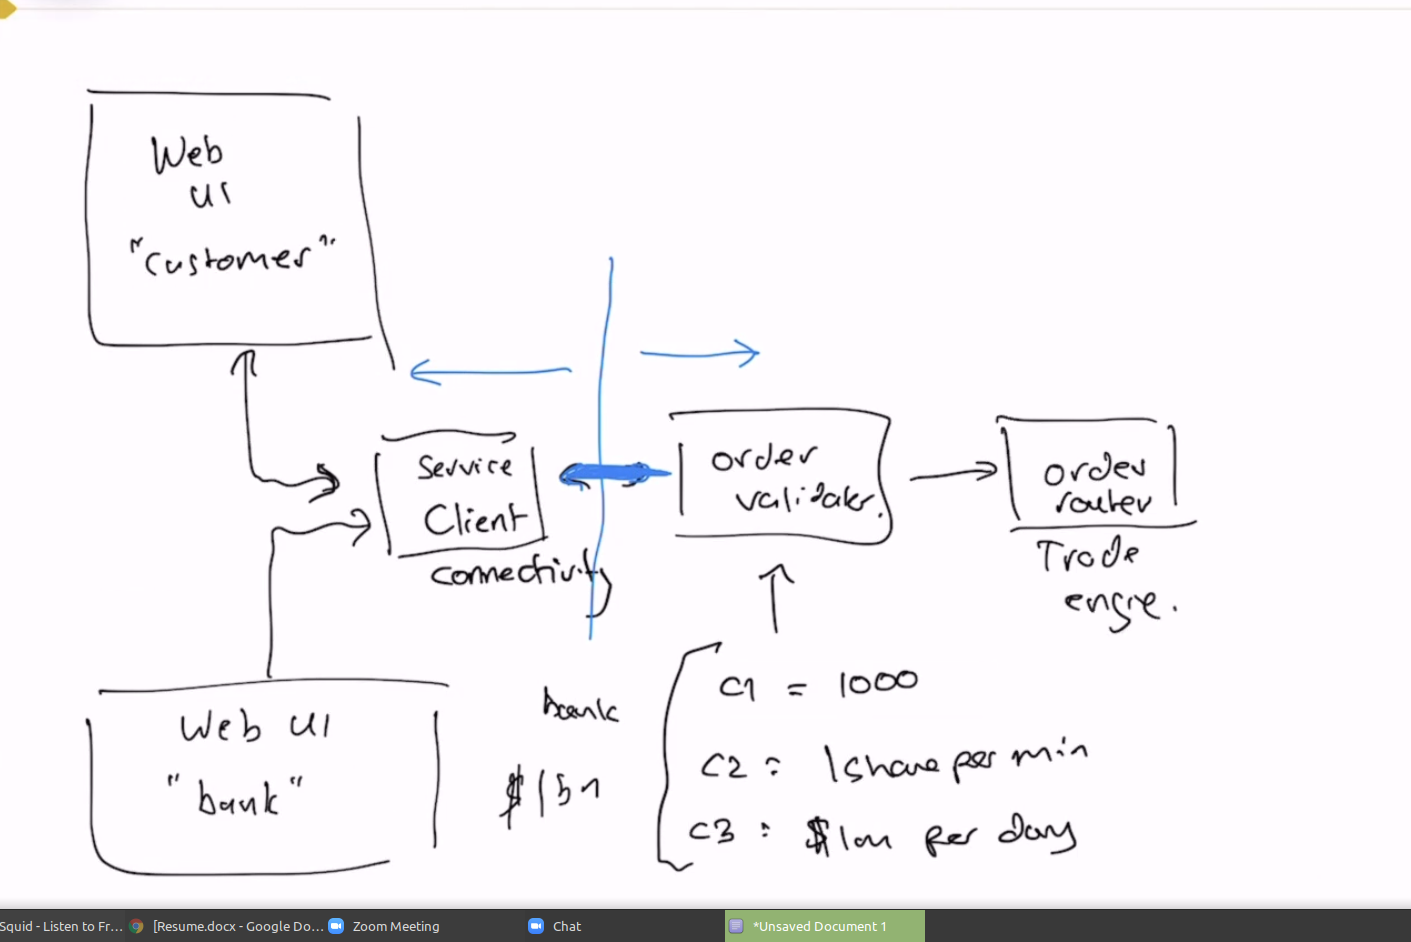 Web
UI
"Customer"
Service
Client
connectivity
order
validater.
order
router
Trade
engre.
Web UI
"bank"
bank
$1bn
C1 = 1000
C2 : 1 share per min
C3 : $1m per day
Squid - Listen to Fr...
[Resume.docx - Google Do...
Zoom Meeting
Chat
*Unsaved Document 1